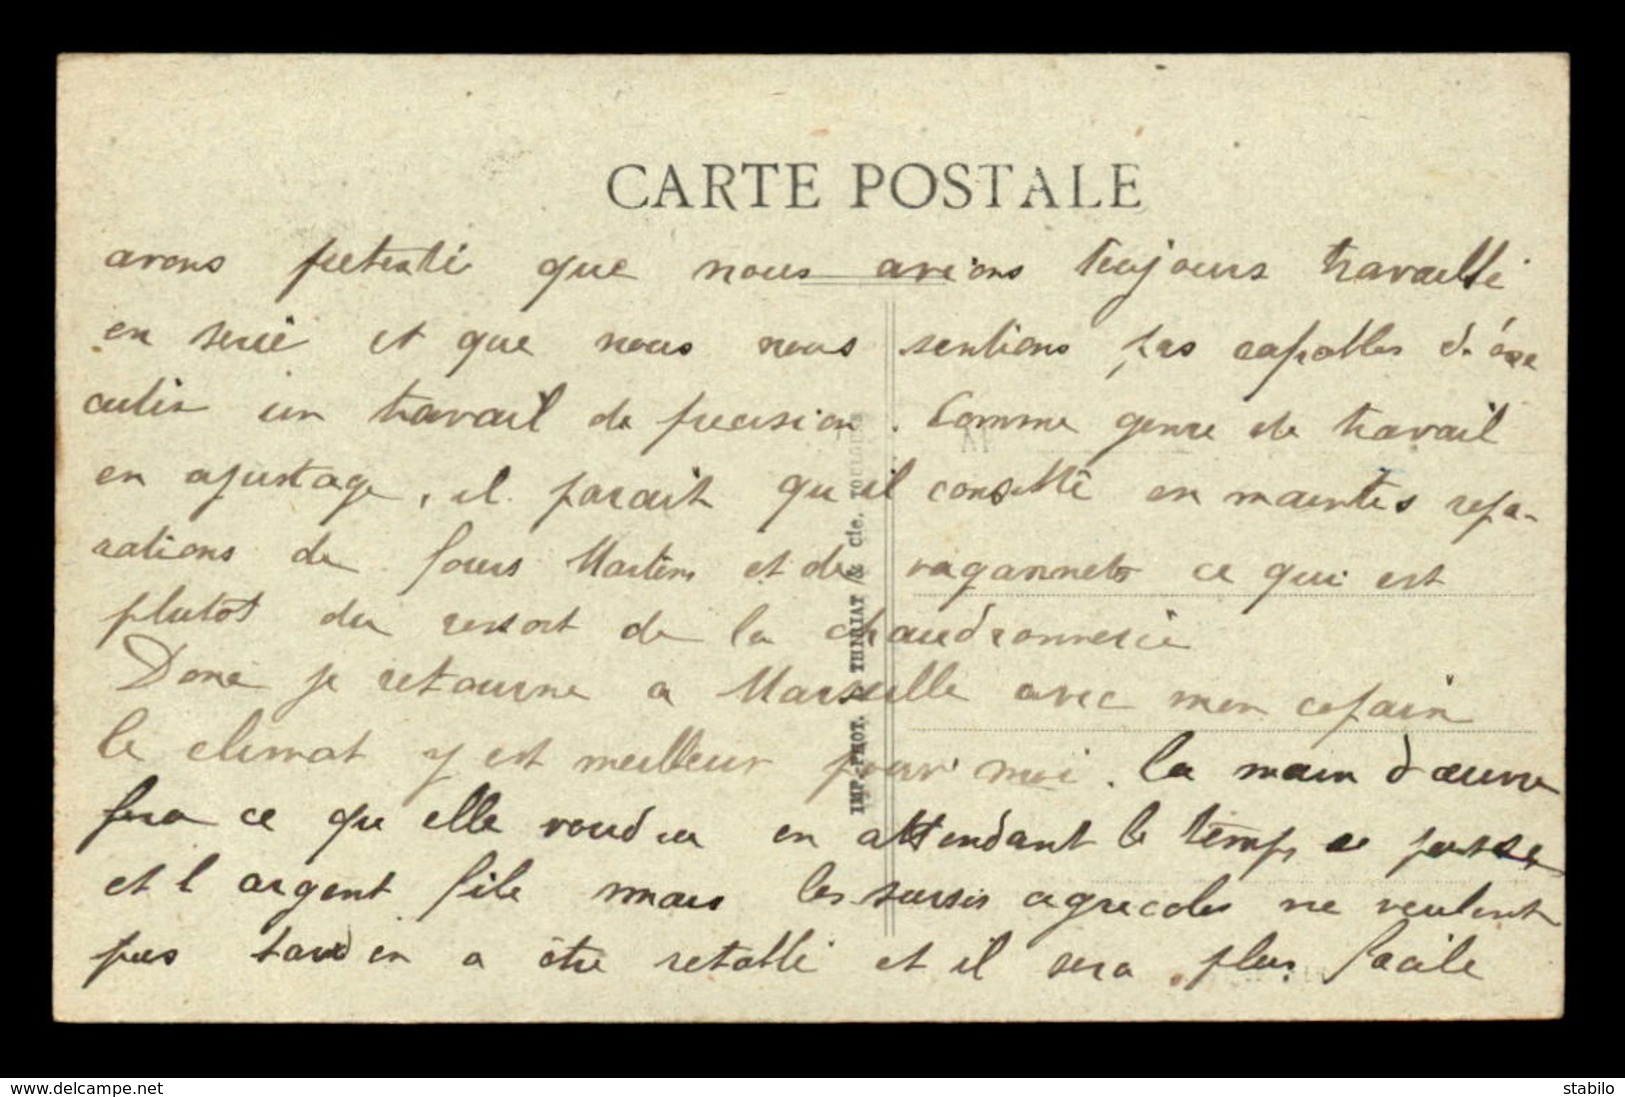 CARTE POSTALE
avons pretexté que nous avions toujours travaillé
en serie et que nous nous sentions pas capables d'éxe
cuter un travail de precision. Comme genre de travail
en ajustage, il parait qu'il consitte en maintes repa-
rations de fours Martins et de vagonnets ce qui est
plutot du ressort de la chaudronnerie
Donc je retourne a Marseille avec mon copain
le climat y est meilleur pour moi. la main d'œuvre
fera ce qu elle voudra en attendant le temps se passe
et l argent file mais les sursis agricoles ne veulent
pas tarder a être retabli et il sera plus facile
IMP. PHOT. THIRIAT & Cie. TOULOUSE
delcampe.net
stabilo